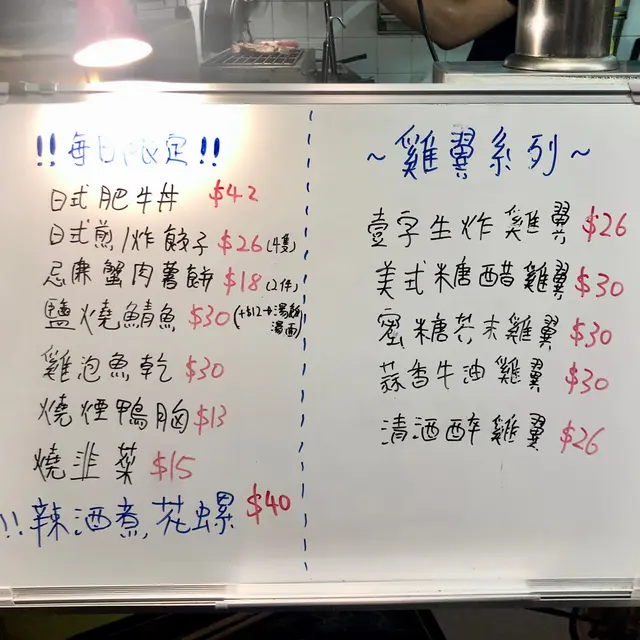 !! 每日限定 !!
日式肥牛丼 $42
日式煎/炸餃子 $26 (4隻)
忌廉蟹肉薯餅 $18 (2件)
鹽燒鯖魚 $30 (+$12
湯麵
雞泡魚乾 $30
燒煙鴨胸 $13
燒韭菜 $15
!! 辣酒煮花螺 $40
~ 雞翼系列 ~
壹字生炸雞翼 $26
美式糖醋雞翼 $30
蜜糖芥末雞翼 $30
蒜香牛油雞翼 $30
清酒醉雞翼 $26